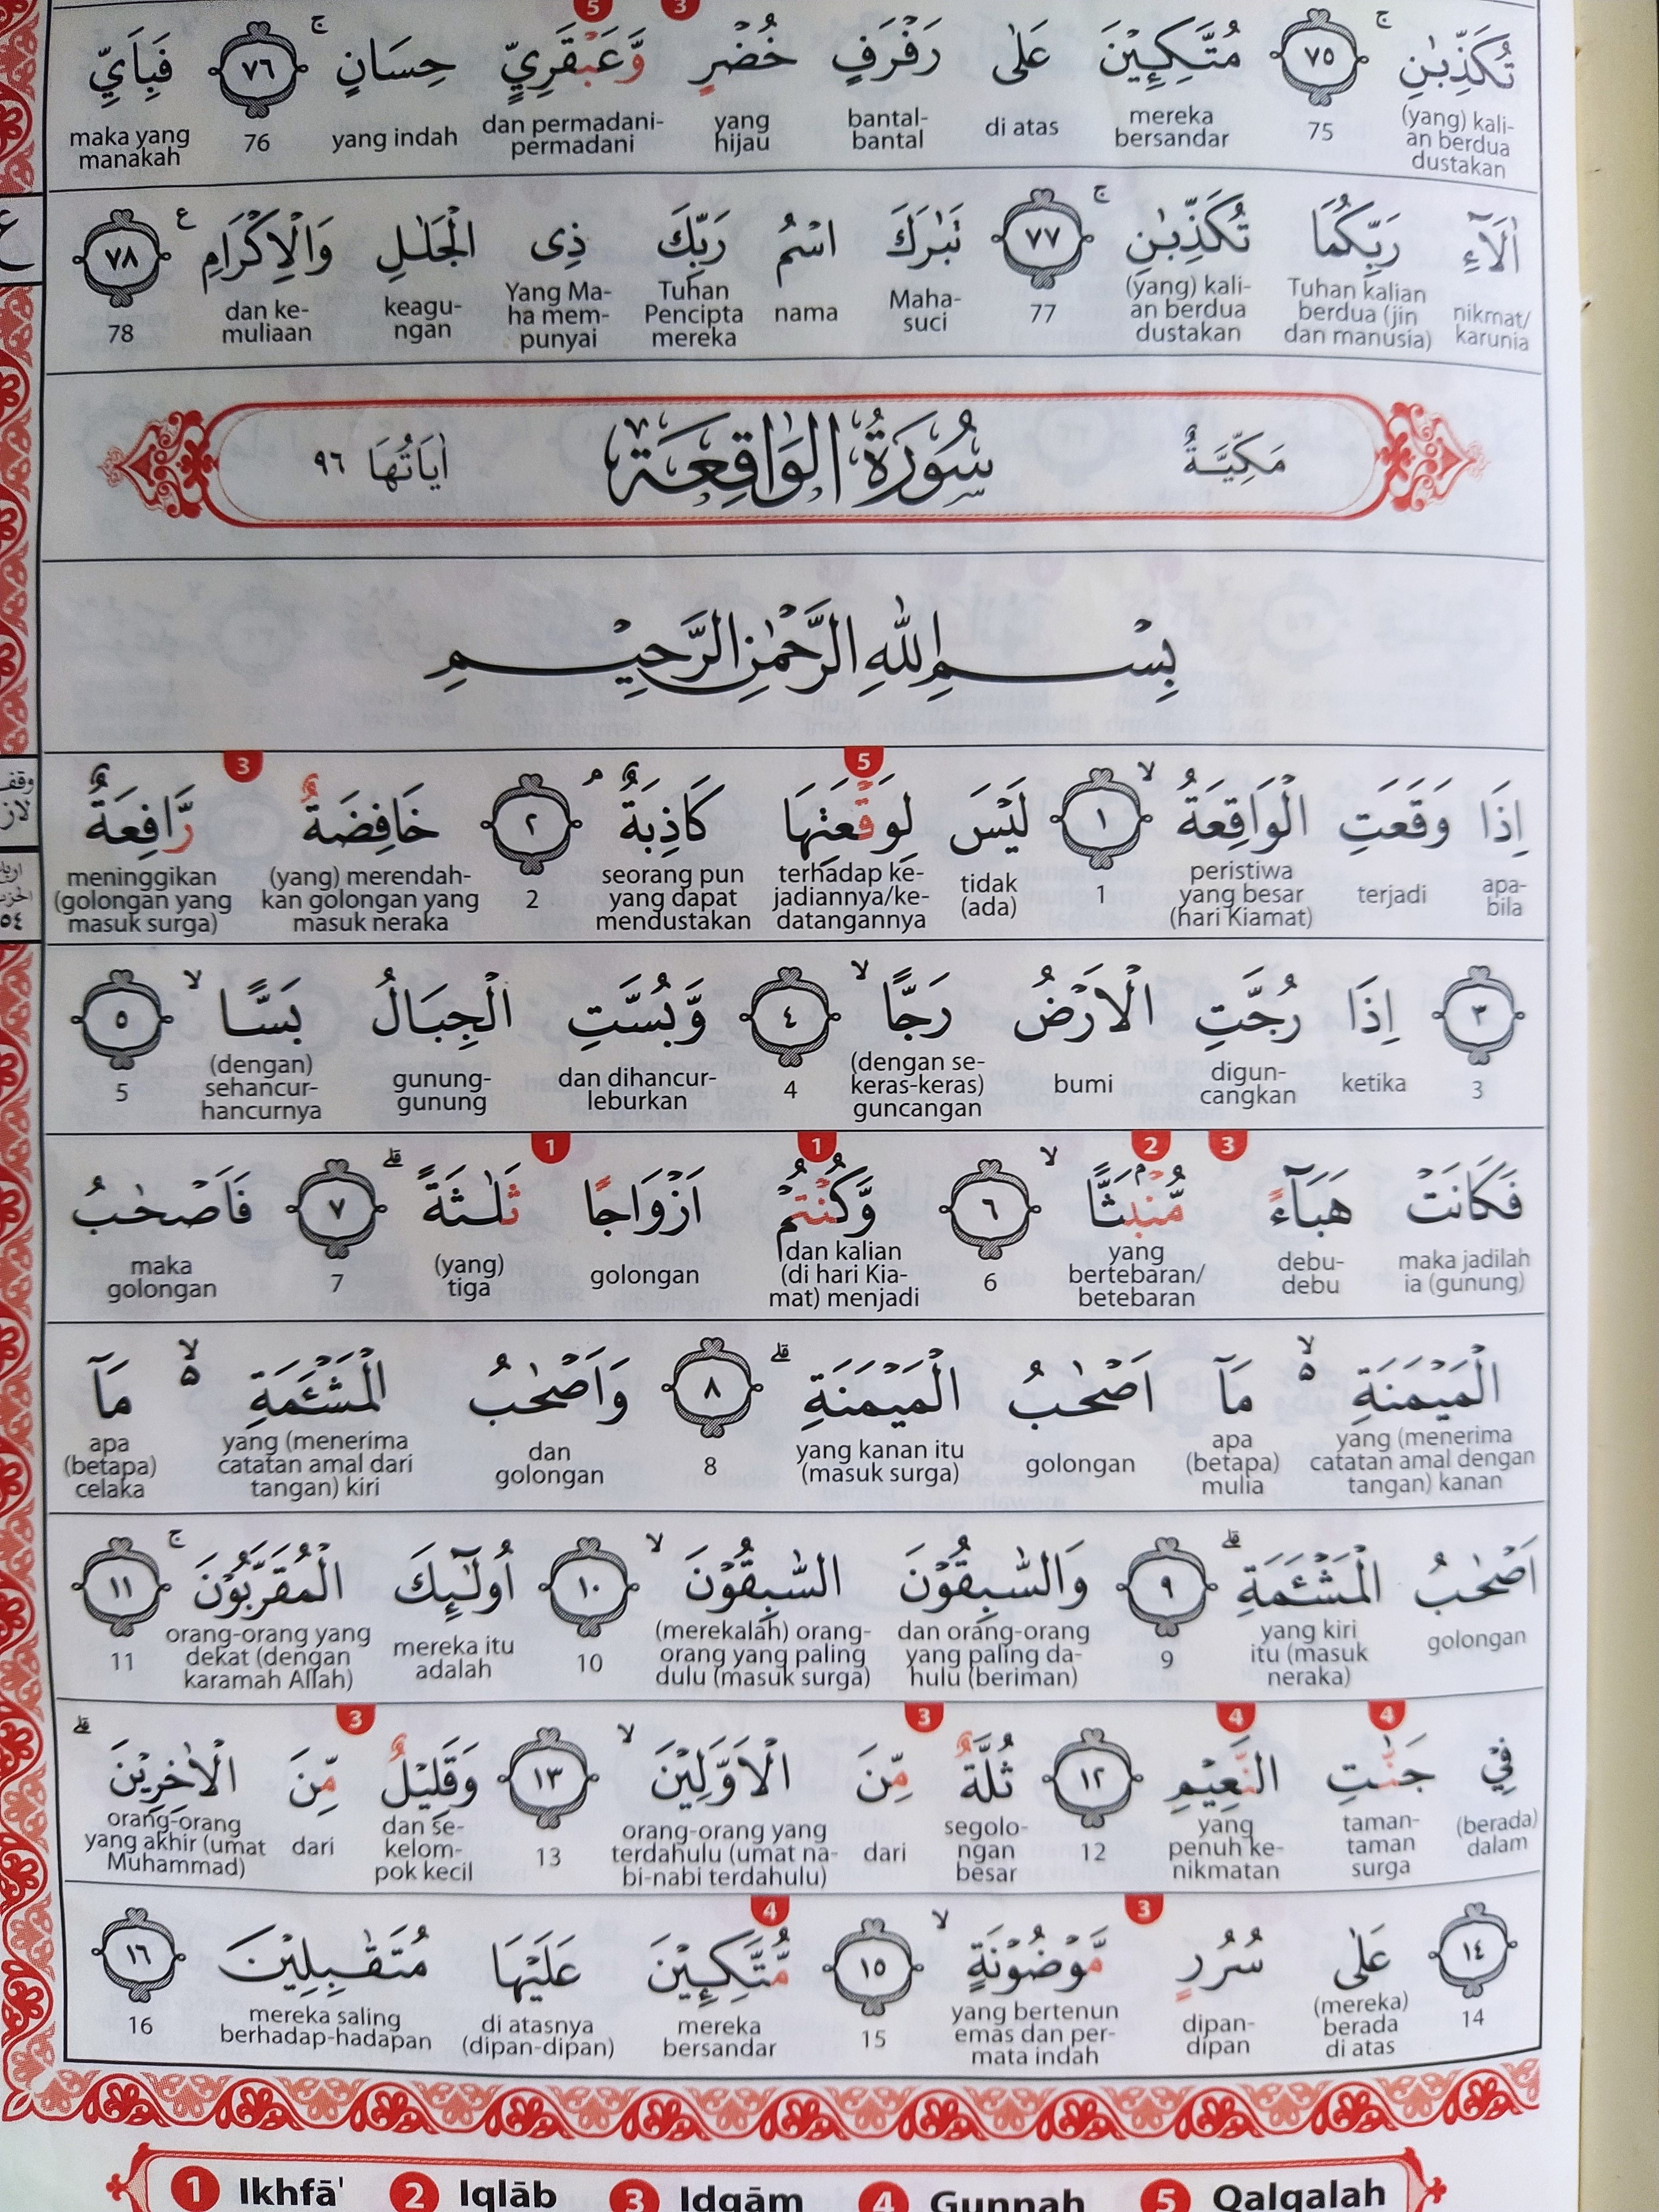 5 3
تُكَذِّبٰنِ ٧٥ مُتَّكِـِٕيْنَ عَلٰى رَفْرَفٍ خُضْرٍ وَّعَبْقَرِيٍّ حِسَانٍ ٧٦ فَبِاَيِّ
(yang) kali-an berdua dustakan 75 mereka bersandar di atas bantal-bantal yang hijau dan permadani-permadani yang indah 76 maka yang manakah
اٰلَاۤءِ رَبِّكُمَا تُكَذِّبٰنِ ٧٧ تَبٰرَكَ اسْمُ رَبِّكَ ذِى الْجَلٰلِ وَالْاِكْرَامِ ٧٨
nikmat/karunia Tuhan kalian berdua (jin dan manusia) (yang) kali-an berdua dustakan 77 Maha-suci nama Tuhan Pencipta mereka Yang Ma-ha mem-punyai keagu-ngan dan ke-muliaan 78
مَكِّيَّةٌ سُوْرَةُ الْوَاقِعَةِ اٰيَاتُهَا ٩٦
بِسْمِ اللّٰهِ الرَّحْمٰنِ الرَّحِيْمِ
5 3
اِذَا وَقَعَتِ الْوَاقِعَةُ ١ لَيْسَ لِوَقْعَتِهَا كَاذِبَةٌ ٢ خَافِضَةٌ رَّافِعَةٌ
apa-bila terjadi peristiwa yang besar (hari Kiamat) 1 tidak (ada) terhadap ke-jadiannya/ke-datangannya seorang pun yang dapat mendustakan 2 (yang) merendah-kan golongan yang masuk neraka meninggikan (golongan yang masuk surga)
٣ اِذَا رُجَّتِ الْاَرْضُ رَجًّا ٤ وَّبُسَّتِ الْجِبَالُ بَسًّا ٥
3 ketika digun-cangkan bumi (dengan se-keras-keras) guncangan 4 dan dihancur-leburkan gunung-gunung (dengan) sehancur-hancurnya 5
3 2 1 1
فَكَانَتْ هَبَاۤءً مُّنْۢبَثًّا ٦ وَّكُنْتُمْ اَزْوَاجًا ثَلٰثَةً ٧ فَاَصْحٰبُ
maka jadilah ia (gunung) debu-debu yang bertebaran/betebaran 6 dan kalian (di hari Kia-mat) menjadi golongan (yang) tiga 7 maka golongan
الْمَيْمَنَةِ مَآ اَصْحٰبُ الْمَيْمَنَةِ ٨ وَاَصْحٰبُ الْمَشْـَٔمَةِ مَآ
yang (menerima catatan amal dengan tangan) kanan apa (betapa) mulia golongan yang kanan itu (masuk surga) 8 dan golongan yang (menerima catatan amal dari tangan) kiri apa (betapa) celaka
اَصْحٰبُ الْمَشْـَٔمَةِ ٩ وَالسّٰبِقُوْنَ السّٰبِقُوْنَ ١٠ اُولٰۤىِٕكَ الْمُقَرَّبُوْنَ ١١
golongan yang kiri itu (masuk neraka) 9 dan orang-orang yang paling da-hulu (beriman) (merekalah) orang-orang yang paling dulu (masuk surga) 10 mereka itu adalah orang-orang yang dekat (dengan karamah Allah) 11
4 4 3 3
فِيْ جَنّٰتِ النَّعِيْمِ ١٢ ثُلَّةٌ مِّنَ الْاَوَّلِيْنَ ١٣ وَقَلِيْلٌ مِّنَ الْاٰخِرِيْنَ
(berada) dalam taman-taman surga yang penuh ke-nikmatan 12 segolo-ngan besar dari orang-orang yang terdahulu (umat na-bi-nabi terdahulu) 13 dan se-kelom-pok kecil dari orang-orang yang akhir (umat Muhammad)
3 4
١٤ عَلٰى سُرُرٍ مَّوْضُوْنَةٍ ١٥ مُّتَّكِـِٕيْنَ عَلَيْهَا مُتَقٰبِلِيْنَ ١٦
14 (mereka) berada di atas dipan-dipan yang bertenun emas dan per-mata indah 15 mereka bersandar di atasnya (dipan-dipan) mereka saling berhadap-hadapan 16
1 Ikhfā' 2 Iqlāb 3 Idgām 4 Gunnah 5 Qalqalah